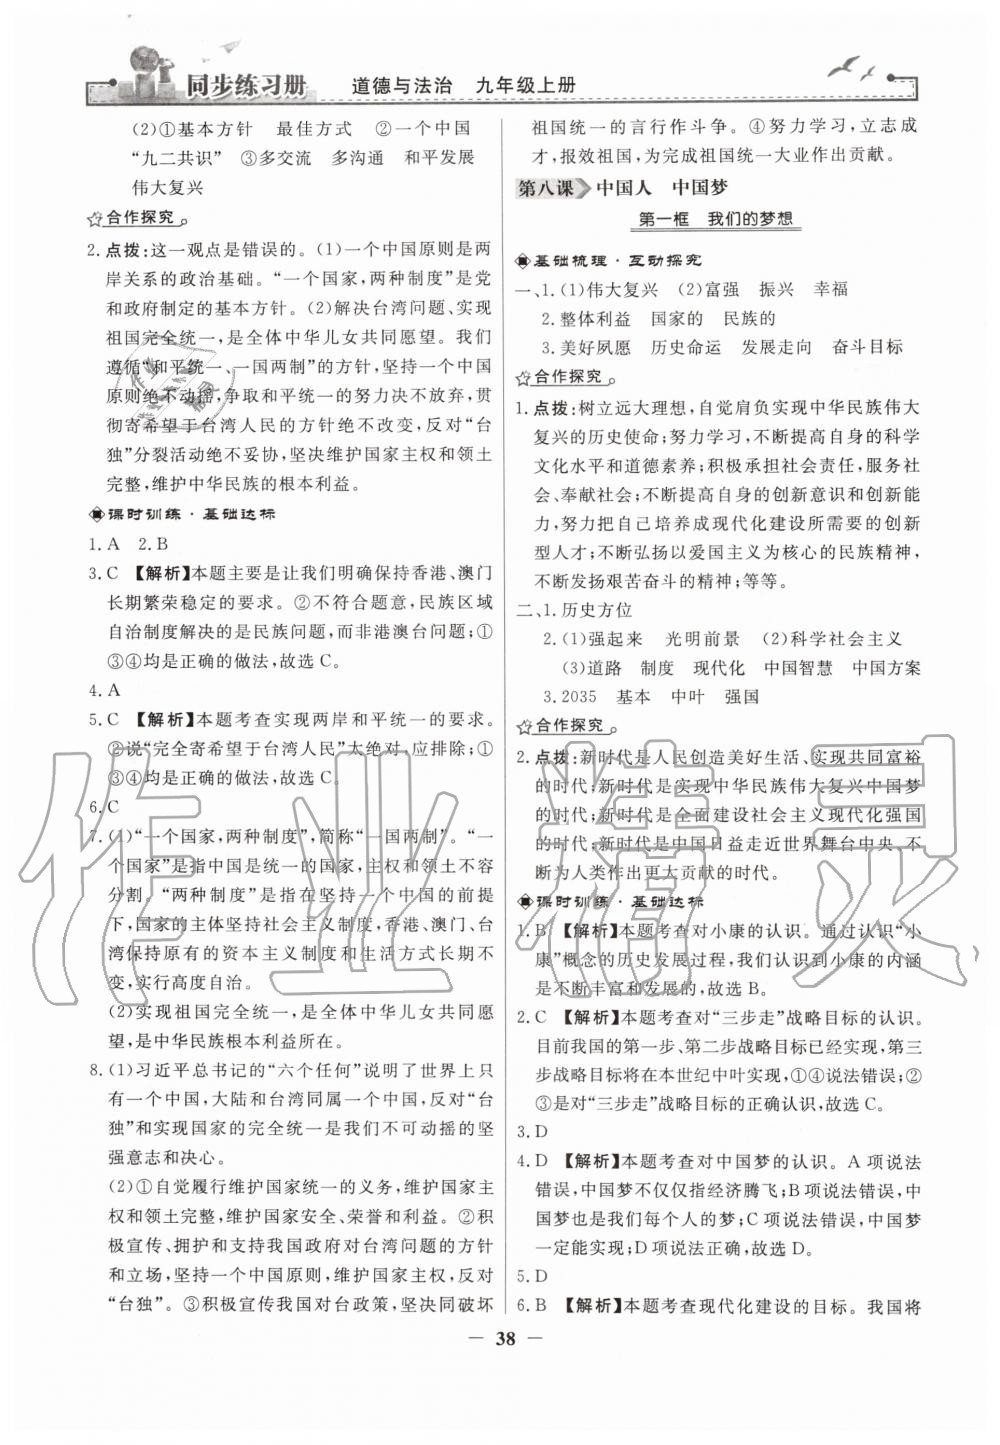 同步练习册 道德与法治 九年级上册
(2)①基本方针 最佳方式 ②一个中国
“九二共识” ③多交流 多沟通 和平发展
伟大复兴
合作探究
2.点拨:这一观点是错误的。(1)一个中国原则是两
岸关系的政治基础。“一个国家,两种制度”是党
和政府制定的基本方针。(2)解决台湾问题、实现
祖国完全统一,是全体中华儿女共同愿望。我们
遵循“和平统一、一国两制”的方针,坚持一个中国
原则绝不动摇,争取和平统一的努力决不放弃,贯
彻寄希望于台湾人民的方针绝不改变,反对“台
独”分裂活动绝不妥协,坚决维护国家主权和领土
完整,维护中华民族的根本利益。
课时训练·基础达标
1.A 2.B
3.C 【解析】本题主要是让我们明确保持香港、澳门
长期繁荣稳定的要求。②不符合题意,民族区域
自治制度解决的是民族问题,而非港澳台问题;①
③④均是正确的做法,故选C。
4.A
5.C 【解析】本题考查实现两岸和平统一的要求。
②说“完全寄希望于台湾人民”太绝对,应排除;①
③④均是正确的做法,故选C。
6.C
7.(1)“一个国家,两种制度”,简称“一国两制”。“一
个国家”是指中国是统一的国家,主权和领土不容
分割。“两种制度”是指在坚持一个中国的前提
下,国家的主体坚持社会主义制度,香港、澳门、台
湾保持原有的资本主义制度和生活方式长期不
变,实行高度自治。
(2)实现祖国完全统一,是全体中华儿女共同愿
望,是中华民族根本利益所在。
8.(1)习近平总书记的“六个任何”说明了世界上只
有一个中国,大陆和台湾同属一个中国,反对“台
独”和实现国家的完全统一是我们不可动摇的坚
强意志和决心。
(2)①自觉履行维护国家统一的义务,维护国家主
权和领土完整,维护国家安全、荣誉和利益。②积
极宣传、拥护和支持我国政府对台湾问题的方针
和立场,坚持一个中国原则,维护国家主权,反对
“台独”。③积极宣传我国对台政策,坚决同破坏
祖国统一的言行作斗争。④努力学习,立志成
才,报效祖国,为完成祖国统一大业作出贡献。
第八课 中国人 中国梦
第一框 我们的梦想
基础梳理·互动探究
一、1.(1)伟大复兴 (2)富强 振兴 幸福
2.整体利益 国家的 民族的
3.美好夙愿 历史命运 发展走向 奋斗目标
合作探究
1.点拨:树立远大理想,自觉肩负实现中华民族伟大
复兴的历史使命;努力学习,不断提高自身的科学
文化水平和道德素养;积极承担社会责任,服务社
会、奉献社会;不断提高自身的创新意识和创新能
力,努力把自己培养成现代化建设所需要的创新
型人才;不断弘扬以爱国主义为核心的民族精神,
不断发扬艰苦奋斗的精神;等等。
二、1.历史方位
2.(1)强起来 光明前景 (2)科学社会主义
(3)道路 制度 现代化 中国智慧 中国方案
3.2035 基本 中叶 强国
合作探究
2.点拨:新时代是人民创造美好生活、实现共同富裕
的时代;新时代是实现中华民族伟大复兴中国梦
的时代;新时代是全面建设社会主义现代化强国
的时代;新时代是中国日益走近世界舞台中央、不
断为人类作出更大贡献的时代。
课时训练·基础达标
1.B 【解析】本题考查对小康的认识。通过认识“小
康”概念的历史发展过程,我们认识到小康的内涵
是不断丰富和发展的,故选B。
2.C 【解析】本题考查对“三步走”战略目标的认识。
目前我国的第一步、第二步战略目标已经实现,第三
步战略目标将在本世纪中叶实现,①④说法错误;②
③是对“三步走”战略目标的正确认识,故选C。
3.D
4.D 【解析】本题考查对中国梦的认识。A项说法
错误,中国梦不仅仅指经济腾飞;B项说法错误,中
国梦也是我们每个人的梦;C项说法错误,中国梦
一定能实现;D项说法正确,故选D。
5.D
6.B 【解析】本题考查现代化建设的目标。我国将
— 38 —
作业精灵